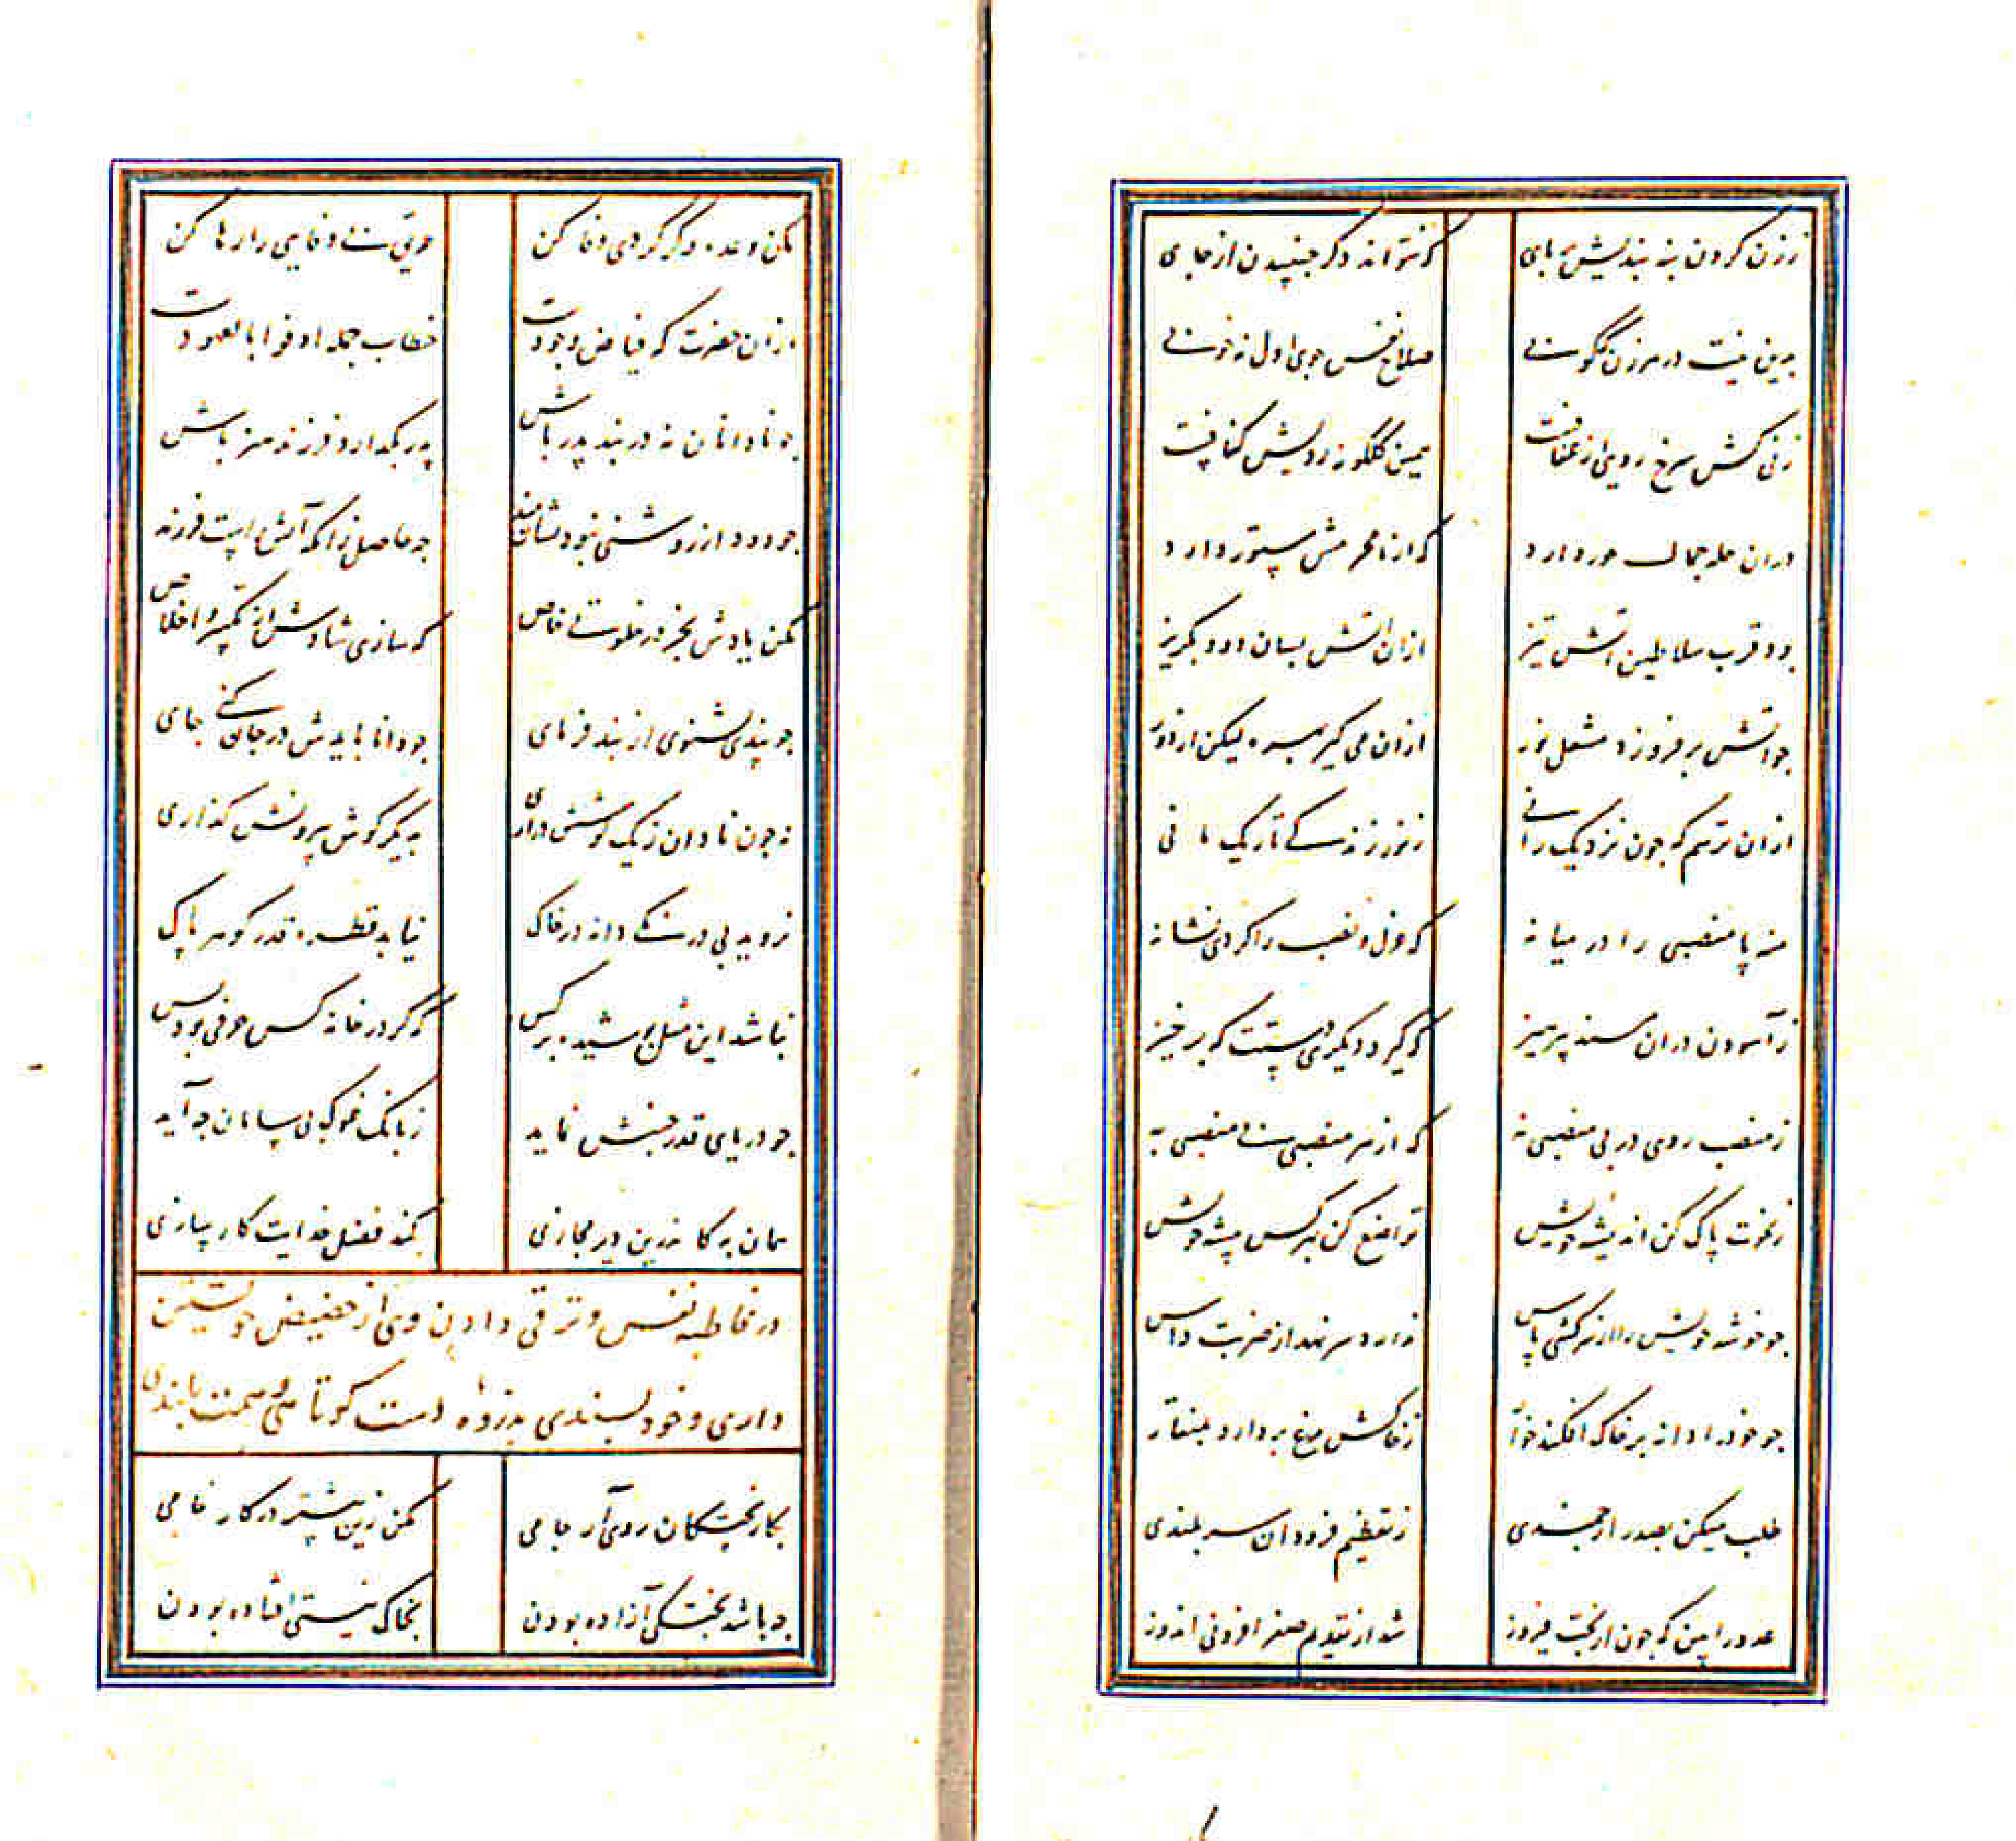 ز زن کردن بنه بندیش بر پای
که نتواند دگر جنبیدن از جای
بدین نیت در هر زن نکوبی
صلاح نفس جوی اول نه خوبی
زنی کش سرخ رویی از عفافست
همین گلگونه رویش کفافست
دران حله جمال حور دارد
که از نامحرمش مستور دارد
بود قرب سلاطین آتش تیز
ازان آتش بسان دود بگریز
جو آتش بر فروزد مشعل نور
ازان می گیر بهره لیکن از دور
ازان ترسم که جون نزدیک رانی
ز نور زندگی تاریک مانی
منه پا منصبی را در میانه
که عزل و نصب را کردی نشانه
ز آسودن دران مسند بپرهیز
که گیرد دیگری دستت که برخیز
ز منصب روی در بی منصبی نه
که از هر منصبی بی منصبی به
ز نخوت پاک کن اندیشه خویش
تواضع کن بهر کس پیشه خویش
جو خوشه خویش را از سرکشی پاس
ندارد سر نهد از ضربت داس
جو خود را دانه بر خاک افکند خوار
ز خاکش مرغ بردارد بمنقار
طلب میکن بصدر ارجمندی
ز تعظیم فرودان سر بلندی
عدد را بین که جون از بخت فیروز
شد از تقدیم صفر افزونی اندوز
مکن وعده وگر کردی وفا کن
طریق بی وفایی را رها کن
ازان حضرت که فیاض وجودست
خطاب جمله اوفوا بالعهودست
جو نادانان نه در بند پدر باش
پدر بگذار و فرزند هنر باش
جو دود از روشنی نبود نشانمند
جه حاصل زانکه آتش راست فرزند
مکن یادش بجز در خلوت خاص
که سازی شادش از تکبیر و اخلاص
جو پندی بشنوی از پند فرمای
جو دانا بایدش در جان کنی جای
نه جون نادان ز یک گوشش دراری
به دیگر گوش بیرونش گذاری
نروید بی درنگی دانه در خاک
نیابد قطره قدر گوهر پاک
نباشد این مثل پوشیده بر کس
که گر در خانه کس حرفی بود بس
جو دریای قدر جنبش نماید
ز بانگ غوک بی سامان جه آید
همان به کاندرین دیر مجازی
کند فضل خدایت کارسازی
در مخاطبه نفس و ترقی دادن وی از حضیض خویشتن
داری و خود پسندی بذروه دست کوتاهی و همت بلندی
بکار پختگان روی آر جامی
مکن زین بیشتر در کار خامی
جه باشد پختگی آزاده بودن
بخاک نیستی افتاده بودن